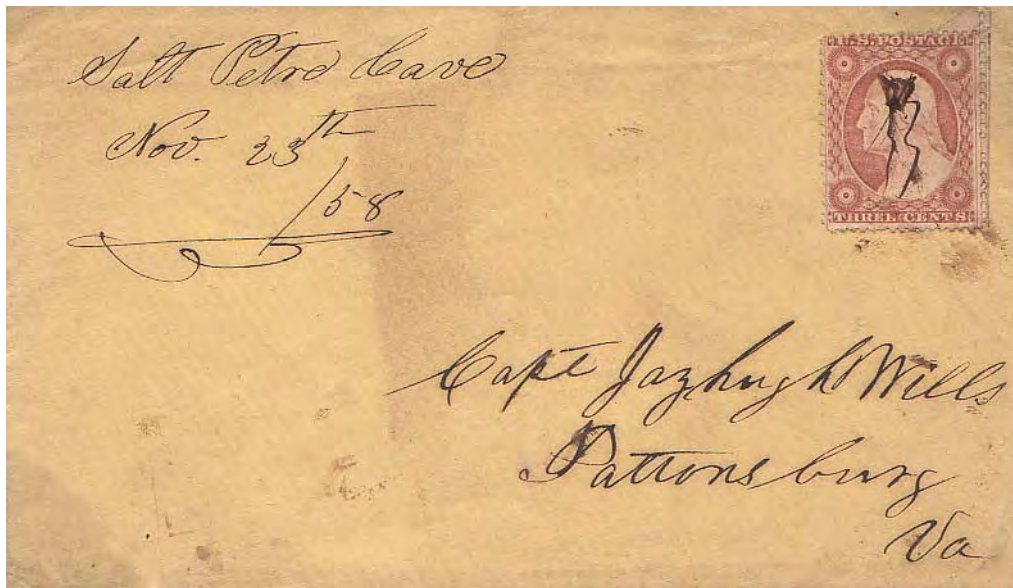 Salt Petre Cave
Nov. 23th
/58
U.S. POSTAGE
THREE CENTS
Capt Jazhugh Wills
Pattonsburg
Va